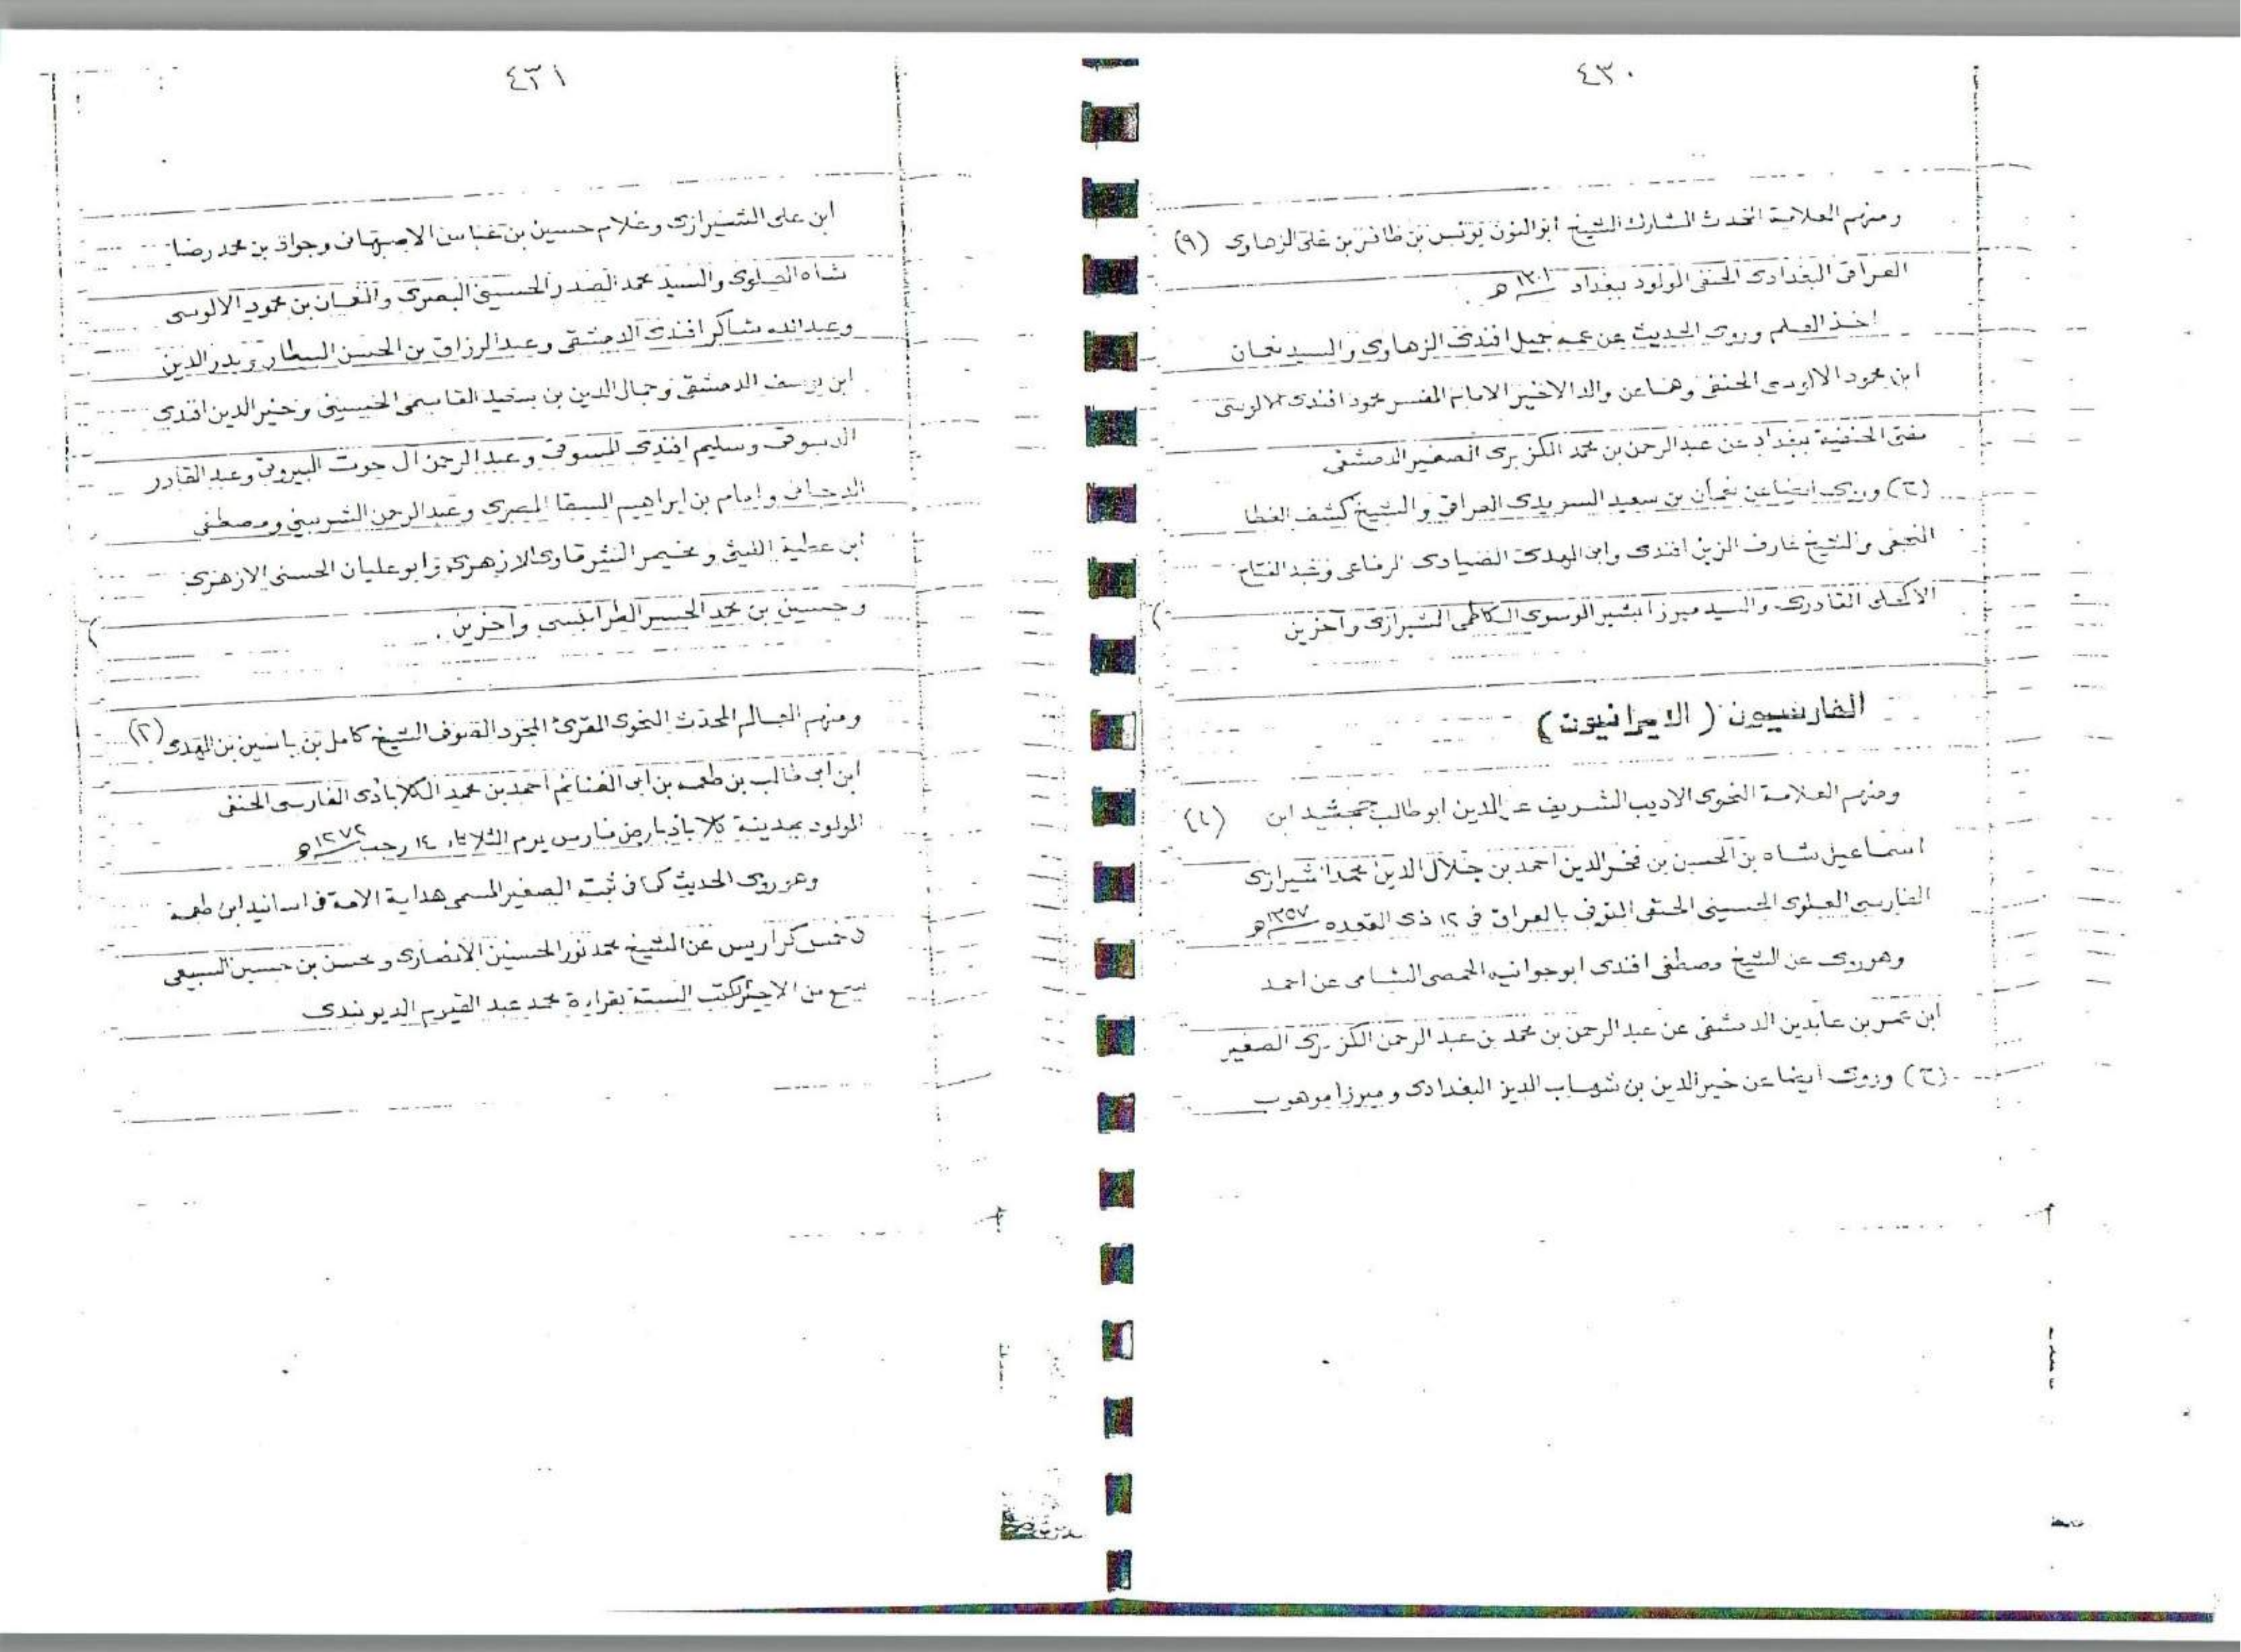 ٤٣٠
ومنهم العلامة المحدث المشارك الشيخ ابو النون يونس بن ظافر بن على الزهاوى (٩)
العراقى البغدادى الحنفى المولود ببغداد ١٣٠١ هـ .
اخذ العلم وروى الحديث عن عمه جميل افندى الزهاوى والسيد نعمان
ابن محمود الالوسى الحنفى وهما عن والد الاخير الامام المفسر محمود افندى الالوسى
مفتى الحنفية ببغداد عن عبد الرحمن بن محمد الكزبرى الصغير الدمشقى
(ح) وروى ايضا عن نعمان بن سعيد السويدى العراقى والشيخ كشف الغطا
النجفى والشيخ عارف الزين افندى وابى الهدى الضيادى الرفاعى وعبد الفتاح
القادرى والسيد ميرزا بشير الموسوى الكاظمى الشيرازى وآخرين
الفارسيون ( الايرانيون )
ومنهم العلامة النحوى الاديب الشريف عز الدين ابو طالب جمشيد ابن (١)
اسماعيل شاه بن الحسين بن فخر الدين احمد بن جلال الدين محمد الشيرازى
الفارسى العلوى الحسينى الحنفى المتوفى بالعراق فى ١٢ ذى القعده ١٣٥٧ هـ
وهو روى عن الشيخ مصطفى افندى ابو جوانيه الحمصى الشامى عن احمد
ابن عمر بن عابدين الدمشقى عن عبد الرحمن بن محمد بن عبد الرحمن الكزبرى الصغير
(ح) وروى ايضا عن خير الدين بن شهاب الدين البغدادى وميرزا موهوب
٤٣١
ابن على الشيرازى وغلام حسين بن عباس الاصبهانى وجواد بن محمد رضا
شاه العلوى والسيد محمد الصدر الحسينى البصرى والنعمان بن محمود الالوسى
وعبد الله شاكر افندى الدمشقى وعبد الرزاق بن الحسن البيطار وبدر الدين
ابن يوسف الدمشقى وجمال الدين بن سعيد القاسمى الحسينى وخير الدين افندى
الدسوقى وسليم افندى المسوقى وعبد الرحمن آل حوت البيروتى وعبد القادر
الدجانى وامام بن ابراهيم السقا المصرى وعبد الرحمن الشربينى ومصطفى
ابن عطية الليثى ومخيمر الشرقاوى الازهرى وابو عليان الحسنى الازهرى
وحسين بن محمد الجسر الطرابلسى وآخرين .
ومنهم العالم المحدث النحوى المقرئ المجود الصوفى الشيخ كامل بن ياسين بن المهدى (٢)
ابن ابى طالب بن طعمه بن ابى الغنائم احمد بن محمد الكلاباذى الفارسى الحنفى
المولود بمدينة كلاباذ بارض فارس يوم الثلاثاء ١٤ رجب ١٢٧٢ هـ
وهو روى الحديث كما فى ثبته الصغير المسمى هداية الامة فى اسانيد ابن طعمة
فى خمس كراريس عن الشيخ محمد نور الحسنين الانصارى ومحسن بن حسين السبيعى
الكتب الستة بقراءة محمد عبد القيوم الديوبندى